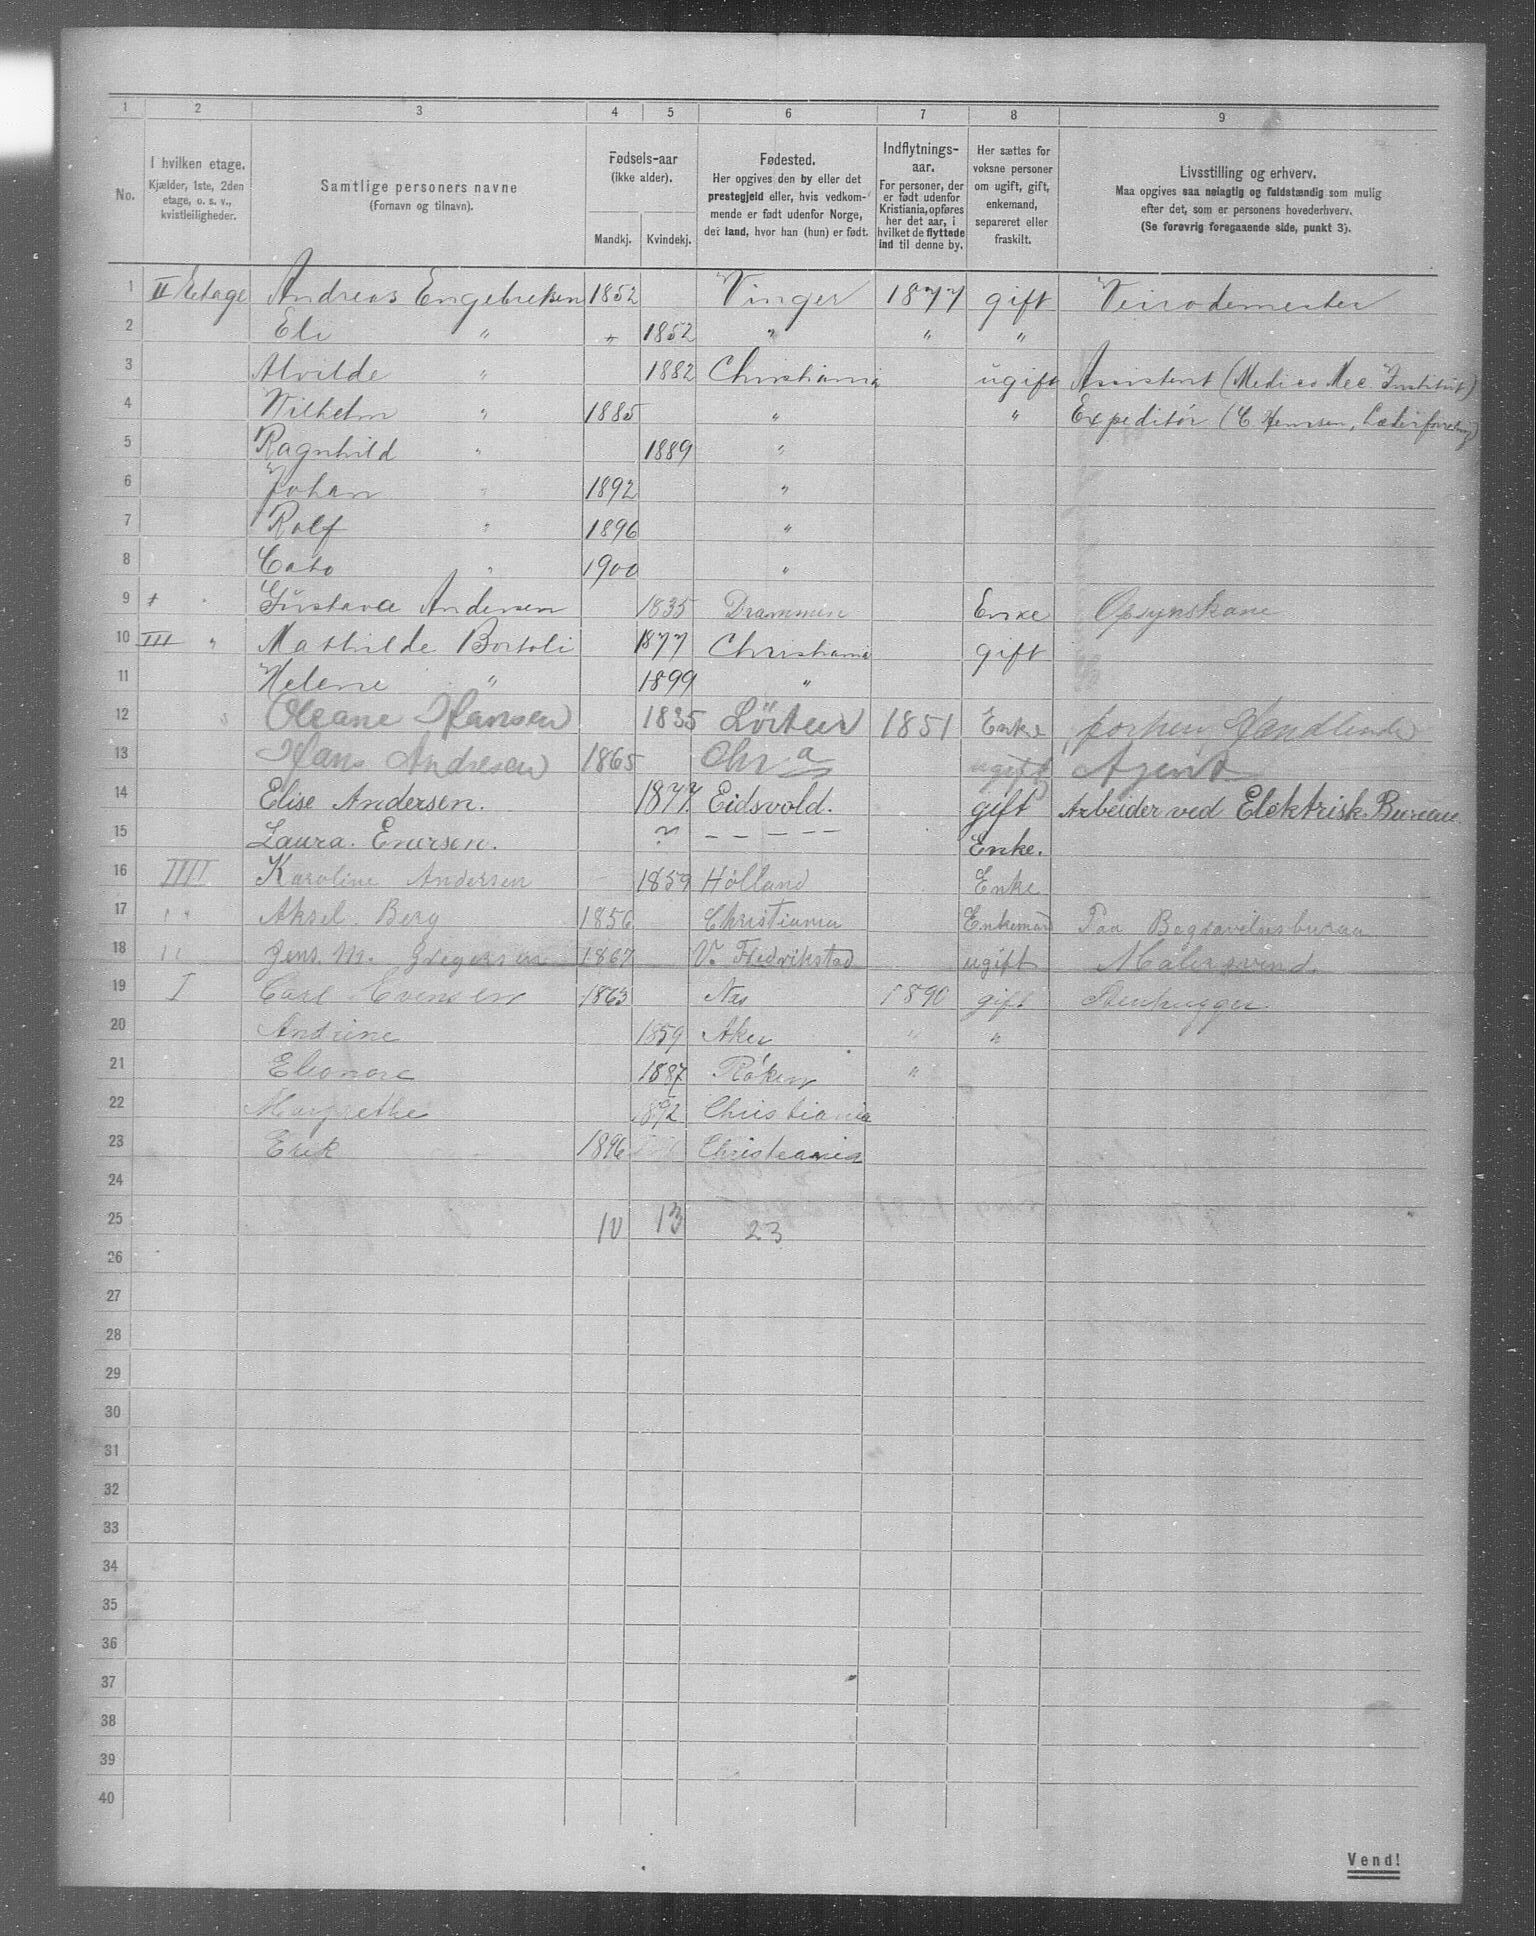 1 2 3 4 5 6 7 8 9
No.
I hvilken etage.
Kjælder, 1ste, 2den
etage, o. s. v.,
kvistleiligheder.
Samtlige personers navne
(Fornavn og tilnavn).
Fødsels-aar
(ikke alder).
Mandkj. Kvindekj.
Fødested.
Her opgives den by eller det
prestegjeld eller, hvis vedkom-
mende er født udenfor Norge,
det land, hvor han (hun) er født.
Indflytnings-
aar.
For personer, der
er født udenfor
Kristiania, opføres
her det aar, i
hvilket de flyttede
ind til denne by.
Her sættes for
voksne personer
om ugift, gift,
enkemand,
separeret eller
fraskilt.
Livsstilling og erhverv.
Maa opgives saa nøiagtig og fuldstændig som mulig
efter det, som er personens hovederhverv.
(Se forøvrig foregaaende side, punkt 3).
1 II Etage Andreas Engebretsen 1852 Vinger 1877 gift Veirodemester
2 Eli " " 1852 " " "
3 Alvilde " 1882 Christiania ugift Assistent (Medico Mec. Institut)
4 Vilhelm " 1885 " " Expeditør (C
5 Ragnhild " 1889 "
6 Johan " 1892 "
7 Rolf " 1896 "
8 Cato " 1900 "
9 Gustava Andersen 1835 Drammen Enke Opsynskone
10 III " Mathilde Bortoli 1877 Christiania gift
11 Helene " 1899 "
12 " Oleane Hansen 1835 Lörten 1851 Enke Handlende
13 Hans Andresen 1865 Chr a ugift Agent
14 Elise Andersen. 1877. Eidsvold. gift Arbeider ved Elektrisk Bureau.
15 Laura. Enersen. ? – – – – – Enke.
16 IIII Karoline Andersen 1859 Holland Enke
17 " Aksel Berg 1856 Christiania Enkemand Paa
18 " Jens. M. Gregersen 1867 V. Fredrikstad ugift Malersvend.
19 I Carl Evensen 1863 Næs 1890 gift Stenhugger
20 Andrine 1859 Aker " "
21 Eleonore 1887 Røken "
22 Margrethe 1892 Christiania
23 Erik 1896 Christiania
24
25 10 13 23
26
27
28
29
30
31
32
33
34
35
36
37
38
39
40
Vend!